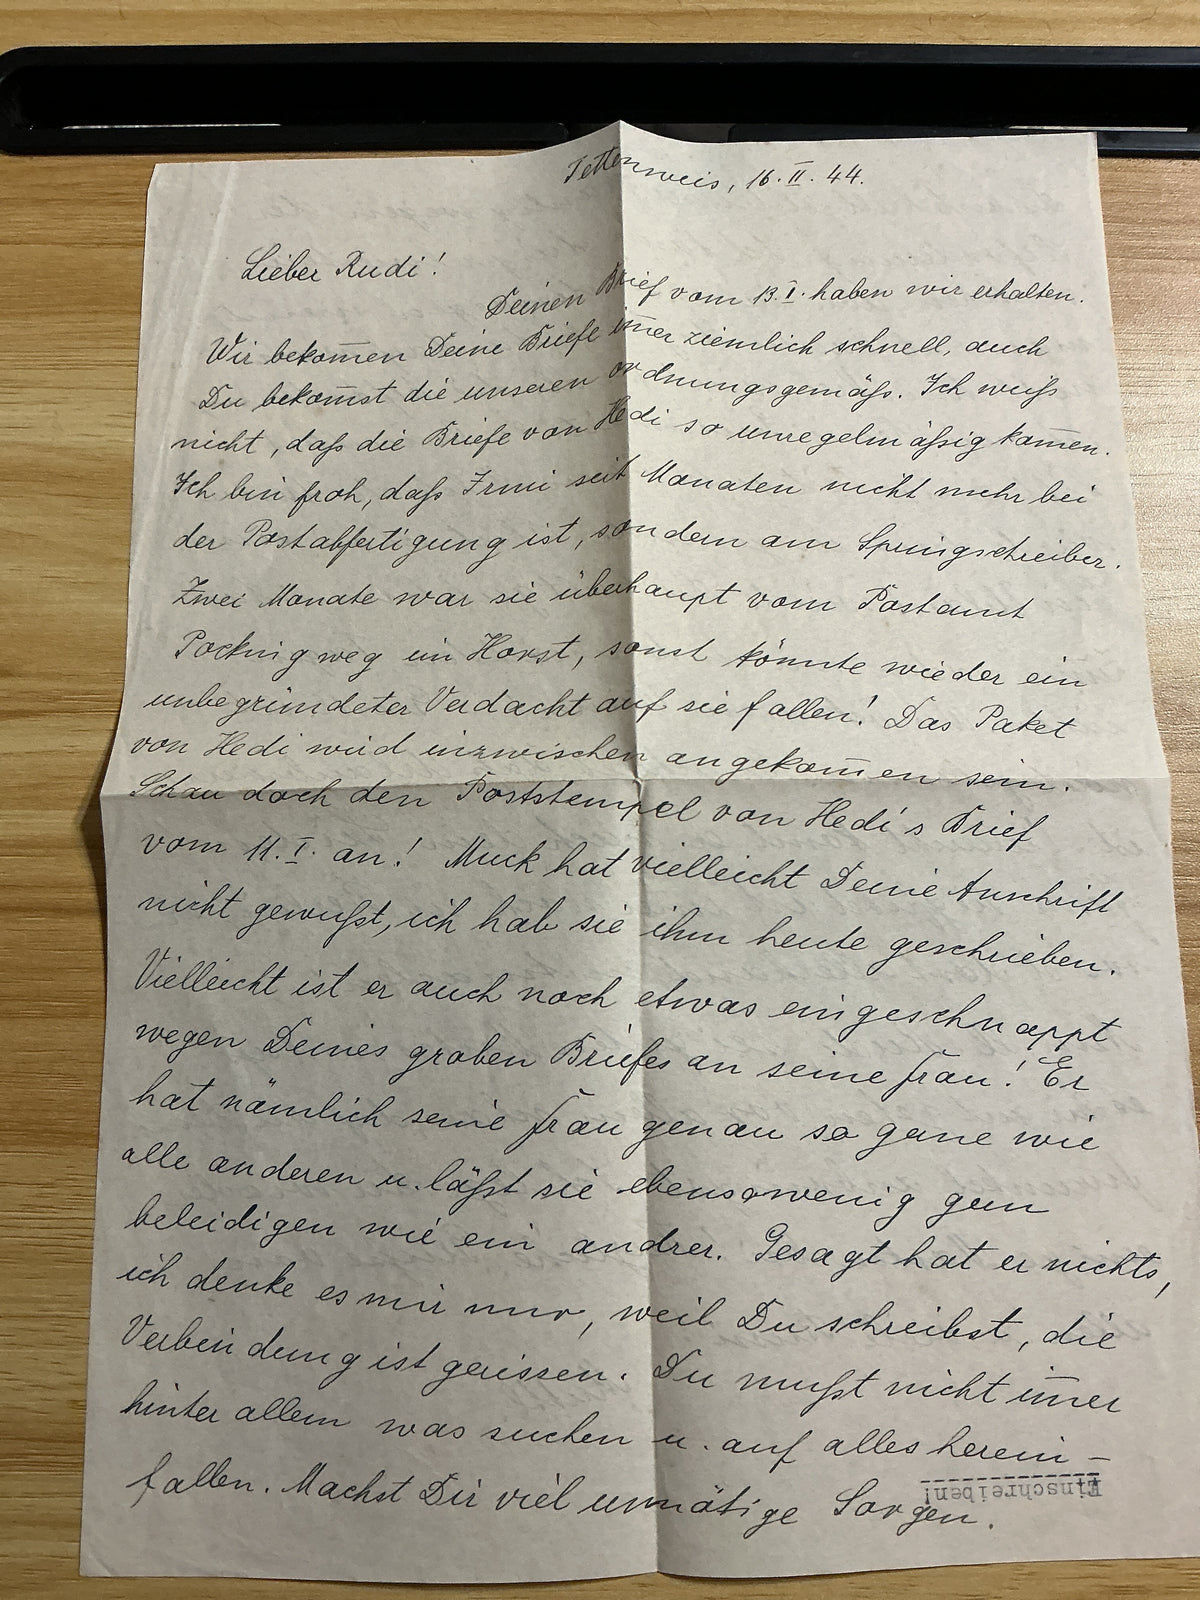 Tettenweis, 16. II. 44.
Lieber Rudi!
Deinen Brief vom 13. I. haben wir erhalten.
Wir bekom̅en Deine Briefe im̅er ziemlich schnell, auch
Du bekom̅st die unseren ordnungsgemäß. Ich weiß
nicht, daß die Briefe von Hedi so unregelmäßig kom̅en.
Ich bin froh, daß Irmi seit Monaten nicht mehr bei
der Postabfertigung ist, sondern am Springschreiber.
Zwei Monate war sie überhaupt vom Postamt
Pocking weg im Horst, sonst könnte wieder ein
unbegründeter Verdacht auf sie fallen! Das Paket
von Hedi wird inzwischen angekom̅en sein.
Schau doch den Poststempel von Hedi's Brief
vom 11. I. an! Muck hat vielleicht Deine Anschrift
nicht gewußt, ich hab sie ihm heute geschrieben.
Vielleicht ist er auch noch etwas eingeschnappt
wegen Deines groben Briefes an seine Frau! Er
hat nämlich seine Frau genau so gerne wie
alle anderen u. läßt sie ebensowenig gern
beleidigen wie ein andrer. Gesagt hat er nichts,
ich denke es mir nur, weil Du schreibst, die
Verbindung ist gerissen. Du mußt nicht im̅er
hinter allem was suchen u. auf alles herein-
fallen. Machst Dir viel unnötige Sorgen.
Einschreiben!